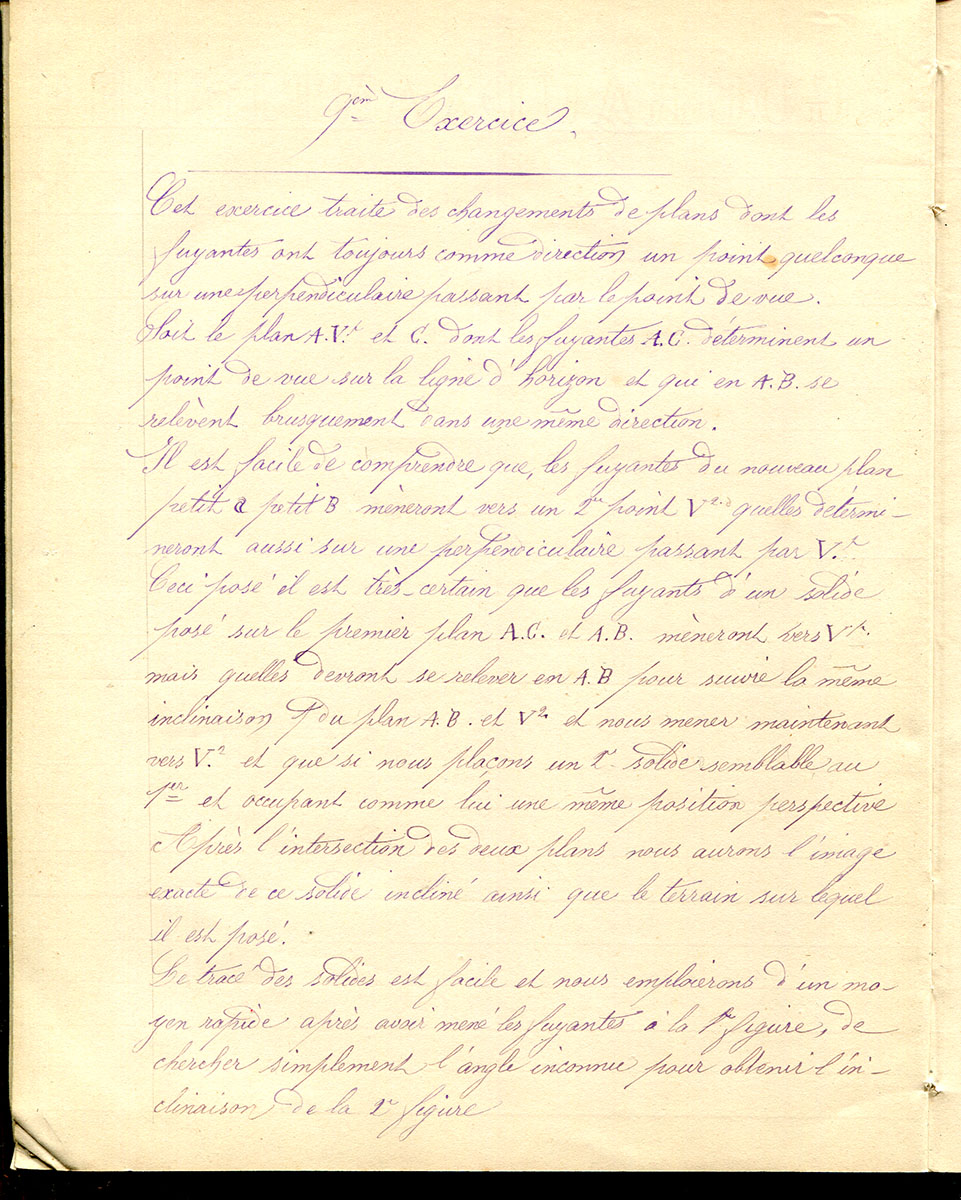 9ème Exercice.
Cet exercice traite des changements de plans dont les
fuyantes ont toujours comme direction un point quelconque
sur une perpendiculaire passant par le point de vue.
Soit le plan A.V.r et C. dont les fuyantes A.C. déterminent un
point de vue sur la ligne d'horizon et qui en A.B. se
relèvent brusquement dans une même direction.
Il est facile de comprendre que, les fuyantes du nouveau plan
petit a petit B mèneront vers un 2e point V2 quelles détermi-
neront aussi sur une perpendiculaire passant par V.r
Ceci posé il est très-certain que les fuyants d'un solide
posé sur le premier plan A.C. et A.B. mèneront vers V
mais quelles devront se relever en A.B pour suivre la même
inclinaison du plan A.B. et V2 et nous mener maintenant
vers V.2 et que si nous plaçons un 2e solide semblable au
1er et occupant comme lui une même position perspective
Après l'intersection des deux plans nous aurons l'image
exacte de ce solide incliné ainsi que le terrain sur lequel
il est posé.
Le tracé des solides est facile et nous emploierons d'un mo-
yen rapide après avoir mené les fuyantes à la 1re figure, de
chercher simplement l'angle inconnu pour obtenir l'in-
clinaison de la 2e figure